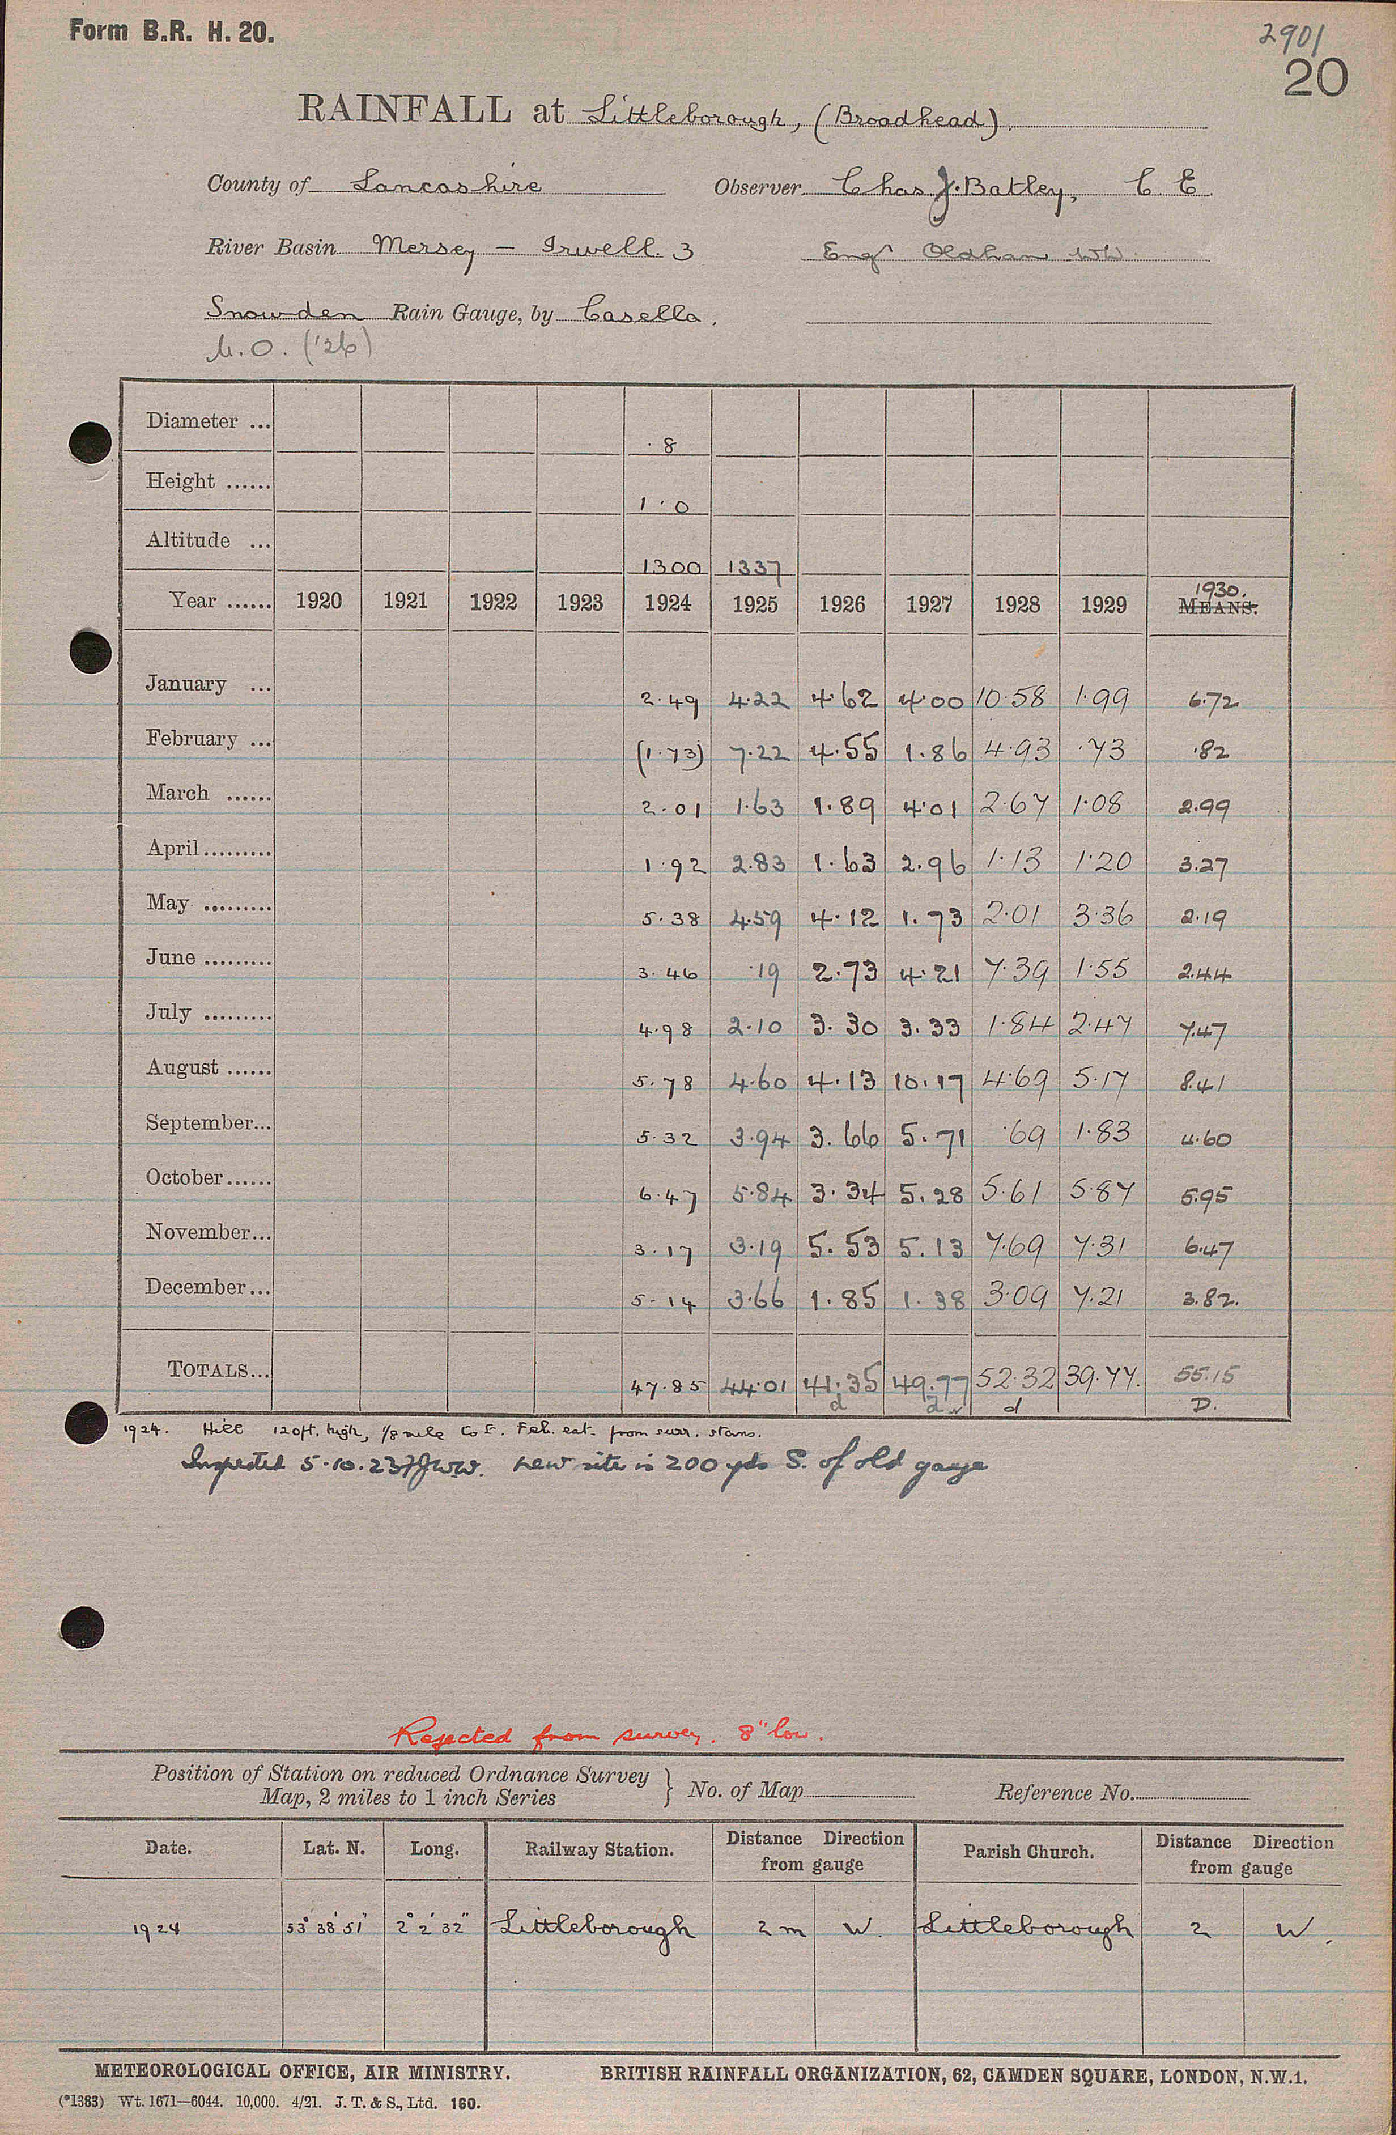 Form B.R. H. 20.
2901
20
RAINFALL at Littleborough, (Broadhead).
County of Lancashire Observer Chas J. Batley, C E
River Basin Mersey – Irwell. 3 Engr Oldham WW.
Snowden Rain Gauge, by Casella.
M.O. ('26)
Diameter ... ·8
Height ...... 1·0
Altitude ... 1300 1337
1930.
Year ...... 1920 1921 1922 1923 1924 1925 1926 1927 1928 1929 MEANS.
January ... 2·49 4·22 4·62 4·00 10·58 1·99 6·72
February ... (1·73) 7·22 4·55 1·86 4·93 ·73 ·82
March ...... 2·01 1·63 1·89 4·01 2·67 1·08 2·99
April ......... 1·92 2·83 1·63 2·96 1·13 1·20 3·27
May ......... 5·38 4·59 4·12 1·73 2·01 3·36 2·19
June ......... 3·46 ·19 2·73 4·21 7·39 1·55 2·44
July ......... 4·98 2·10 3·30 3·33 1·84 2·47 7·47
August ...... 5·78 4·60 4·13 10·17 4·69 5·17 8·41
September... 5·32 3·94 3·66 5·71 ·69 1·83 4·60
October...... 6·47 5·84 3·34 5·28 5·61 5·87 5·95
November... 3·17 3·19 5·53 5·13 7·69 7·31 6·47
December... 5·14 3·66 1·85 1·38 3·09 7·21 3·82.
TOTALS... 47·85 44·01 41·35 49·77 52·32 39·77. 55·15
d d d D.
1924. Hill 120ft. high, 1/8 mile to E. Feb. est. from surr. stans.
Inspected 5·10·23 new site is 200 yds S. of old gauge
Rejected from survey. 8" low.
Position of Station on reduced Ordnance Survey
Map, 2 miles to 1 inch Series } No. of Map Reference No.
Date. Lat. N. Long. Railway Station. Distance Direction from gauge Parish Church. Distance Direction from gauge
1924 53° 38' 51" 2° 2' 32" Littleborough 2 m W. Littleborough 2 W.
METEOROLOGICAL OFFICE, AIR MINISTRY. BRITISH RAINFALL ORGANIZATION, 62, CAMDEN SQUARE, LONDON, N.W.1.
(*1383) Wt. 1671—6044. 10,000. 4/21. J. T. & S., Ltd. 160.